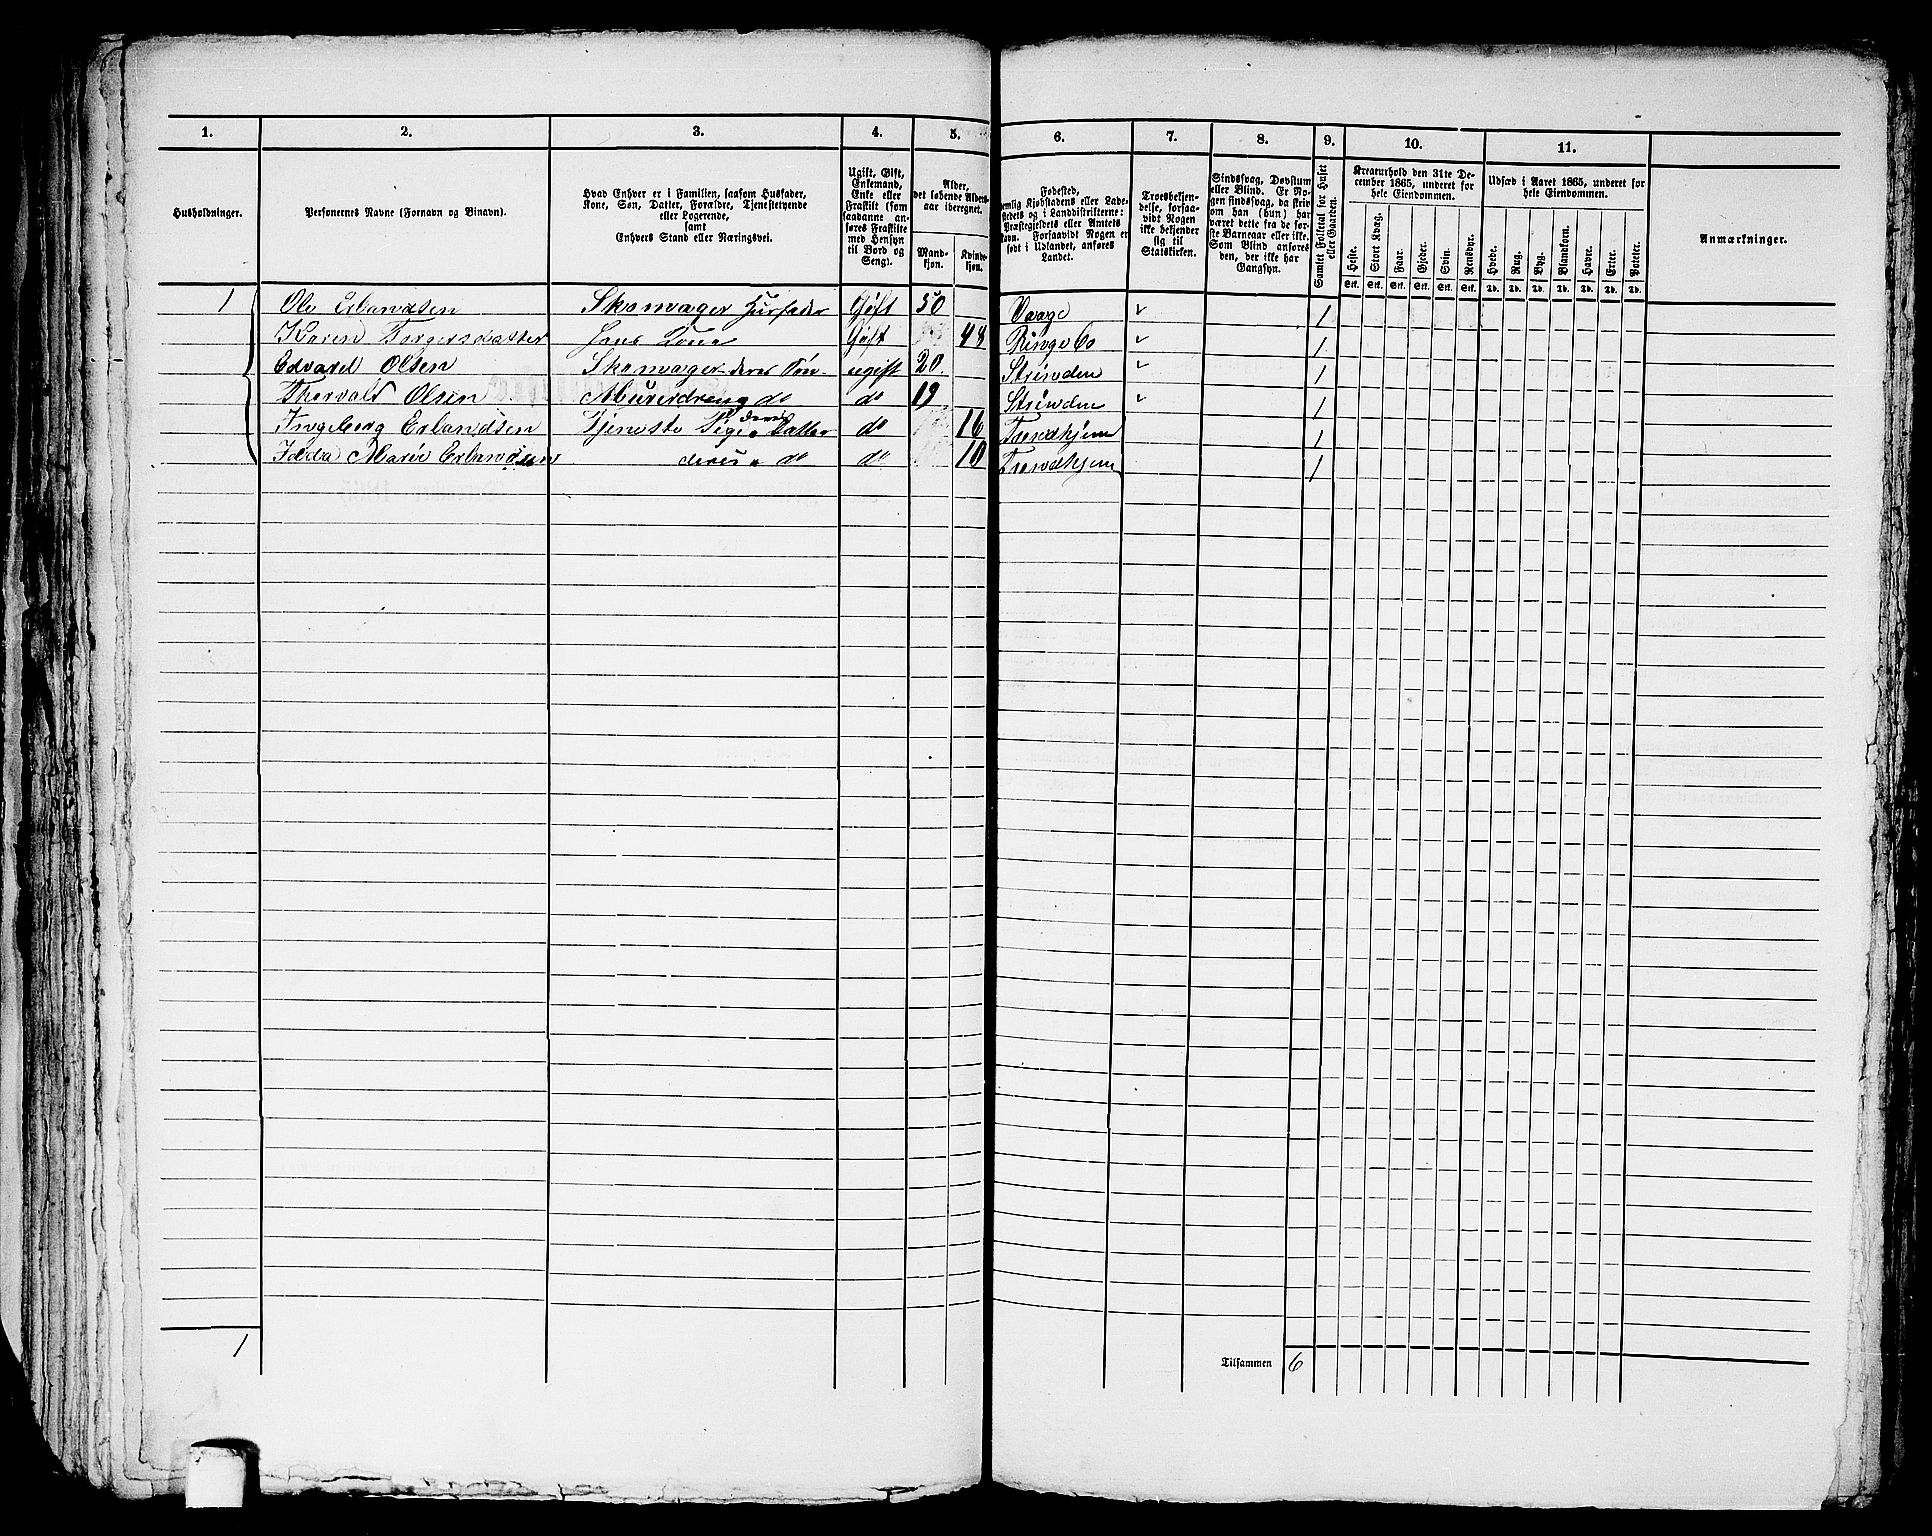 1. 2. 3. 4. 5. 6. 7. 8. 9. 10. 11.
Husholdninger.
Personernes Navne (Fornavn og Binavn).
Hvad Enhver er i Familien, saasom Husfader,
Kone, Søn, Datter, Forældre, Tjenestetyende
eller Logerende,
samt
Enhvers Stand eller Næringsvei.
Ugift, Gift,
Enkemand,
Enke eller
Fraskilt (som
saadanne an-
føres Fraskilte
med Hensyn
til Bord og
Seng).
Alder,
det løbende Alders-
aar iberegnet.
Mand-
kjøn.
Kvinde-
kjøn.
Fødested,
nemlig Kjøbstadens eller Lade-
stedets og i Landdistrikterne:
Præstegjeldets eller Amtets
Navn. Forsaavidt Nogen er
født i Udlandet, anføres
Landet.
Troesbekjen-
delse, forsaa-
vidt Nogen
ikke bekjender
sig til
Statskirken.
Sindssvag, Døvstum
eller Blind. Er No-
gen sindssvag, da skriv
om han (hun) har
været dette fra de før-
ste Barneaar eller ikke.
Som Blind anføres
den, der ikke har
Gangsyn.
Samlet Folketal for Huset
eller Gaarden.
Kreaturhold den 31te De-
cember 1865, underet for
hele Eiendommen.
Heste. Stort Kvæg. Faar. Gjeder. Svin. Rensdyr.
Stk. Stk. Stk. Stk. Stk. Stk.
Udsæd i Aaret 1865, underet for
hele Eiendommen.
Hvede. Rug. Byg. Blandkorn. Havre. Erter. Poteter.
Td. Td. Td. Td. Td. Td. Td.
Anmærkninger.
1 Ole Erlandsen Skomager Husfader Gift 50 Vaage 1
Karen Torgersdatter Hans Kone Gift 48 Ringebo 1
Edvard Olsen Skomager deres Søn ugift 20 Strinden 1
Thorvald Olsen Murerdreng do do 19 Strinden 1
Ingeborg Erlandsen Tjeneste Pige deres Datter do 16 Trondhjem 1
Idda Marie Erlandsen deres do do 10 Trondhjem 1
1 Tilsammen 6